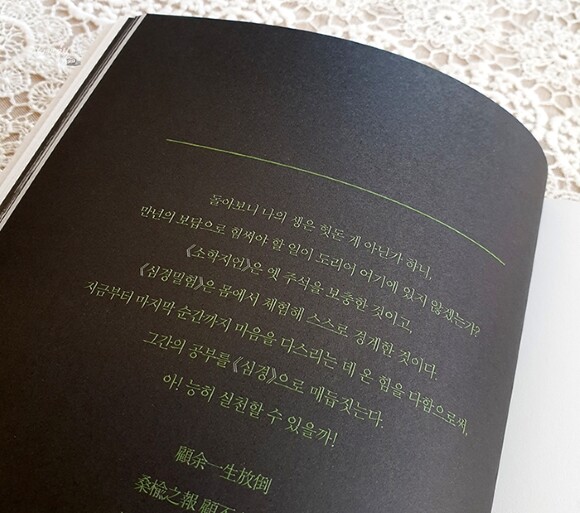 돌아보니 나의 생은 헛돈 게 아닌가 하니,
만년의 보답으로 힘써야 할 일이 도리어 여기에 있지 않겠는가?
《소학지언》은 옛 주석을 보충한 것이고,
《심경밀험》은 몸에서 체험해 스스로 경계한 것이다.
지금부터 마지막 순간까지 마음을 다스리는 데 온 힘을 다함으로써,
그간의 공부를 《심경》으로 매듭짓는다.
아! 능히 실천할 수 있을까!
顧余一生放倒
桑楡之報 顧不